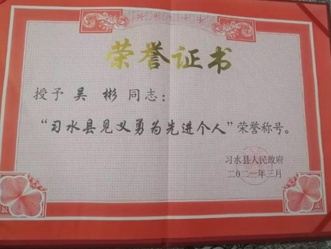 荣誉证书
授予 吴 彬 同志：
“习水县见义勇为先进个人”荣誉称号。
习水县人民政府
二〇二一年三月